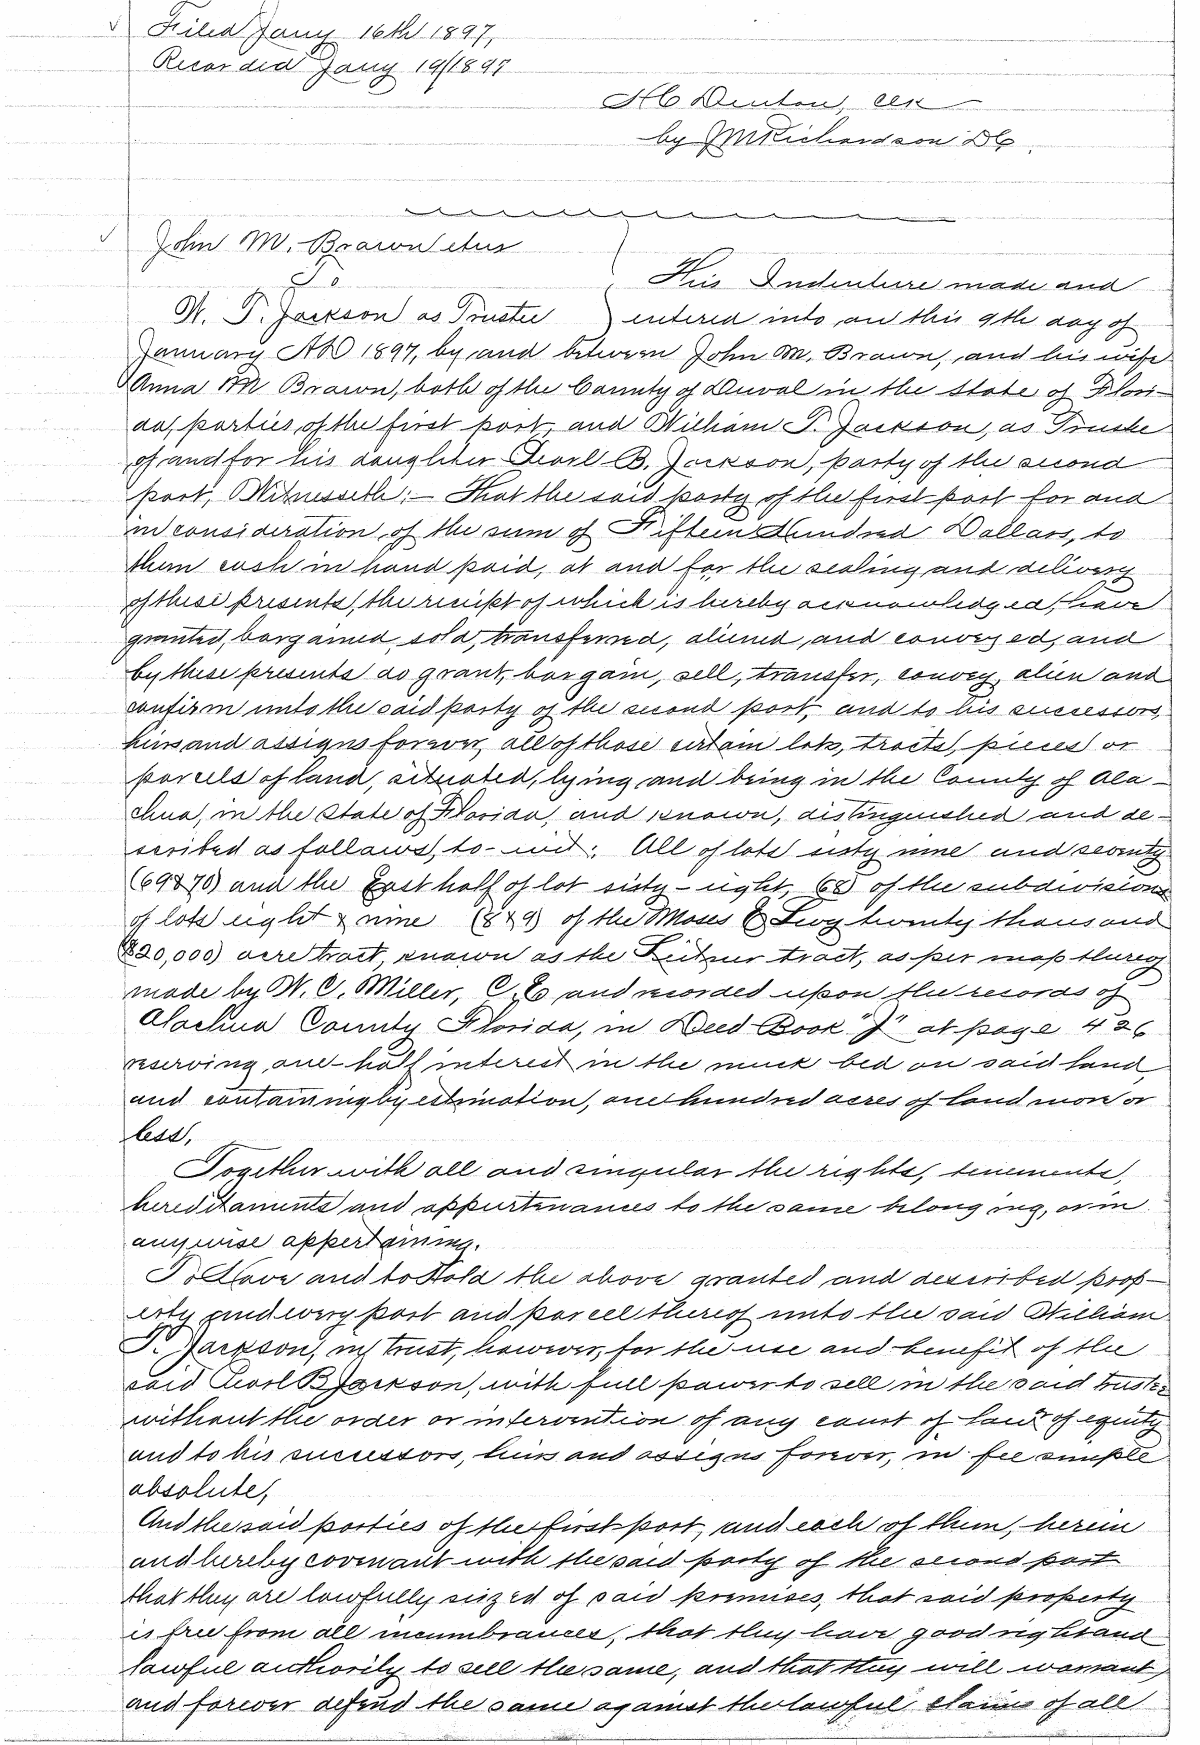 Filed Jany 16th 1897,
Recorded Jany 19/1897
H C Denton, Clk
by J M Richardson DC.
John M. Brown et ux
To
This Indenture made and
W. T. Jackson as Trustee entered into on this 9th day of
January AD 1897, by and between John M. Brown, and his wife
Anna M Brown, both of the County of Duval in the State of Flori-
da, parties of the first part, and William T. Jackson, as Trustee
of and for his daughter Pearl B. Jackson, party of the second
part, Witnesseth:- That the said party of the first part for and
in consideration of the sum of Fifteen Hundred Dollars, to
them cash in hand paid, at and for the sealing and delivery
of these presents, the receipt of which is hereby acknowledged, have
granted, bargained, sold, transferred, aliened, and conveyed, and
by these presents do grant, bargain, sell, transfer, convey, alien and
confirm unto the said party of the second part, and to his successors,
heirs and assigns forever, all of those certain lots, tracts, pieces or
parcels of land, situated, lying and being in the County of Ala-
chua, in the State of Florida, and known, distinguished and de-
scribed as follows, to-wit: All of lots sixty nine and seventy
(69&70) and the East half of lot sixty-eight, (68) of the subdivision
of lots eight & nine (8&9) of the Moses E Levy twenty thousand
(20,000) acre tract, known as the Leitner tract, as per map thereof
made by W. C. Miller, C.E. and recorded upon the records of
Alachua County Florida, in Deed Book "J" at page 426
reserving one-half interest in the muck bed on said land,
and containing by estimation, one hundred acres of land more or
less,
Together with all and singular the rights, tenements,
hereditaments and appurtenances to the same belonging, or in
anywise appertaining.
To Have and to Hold the above granted and described prop-
erty and every part and parcel thereof unto the said William
T. Jackson, in trust, however, for the use and benefit of the
said Pearl B Jackson, with full power to sell in the said trustee
without the order or intervention of any court of law or of equity
and to his successors, heirs and assigns forever, in fee simple
absolute,
And the said parties of the first part, and each of them, herein
and hereby covenant with the said party of the second part
that they are lawfully seized of said premises, that said property
is free from all incumbrances, that they have good right and
lawful authority to sell the same, and that they will warrant,
and forever defend the same against the lawful claims of all